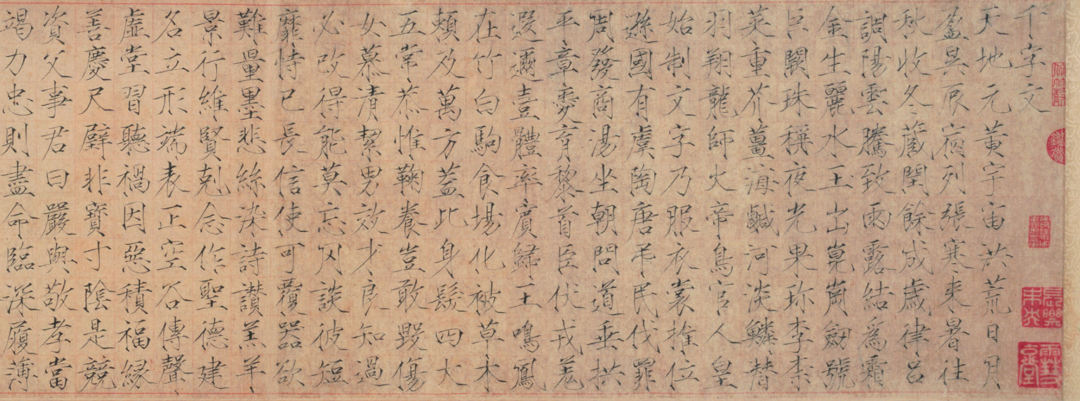 千字文
天地元黃宇宙洪荒日月
盈昃辰宿列張寒來暑往
秋收冬藏閏餘成歲律呂
調陽雲騰致雨露結為霜
金生麗水玉出崑崗劔號
巨闕珠稱夜光果珍李柰
菜重芥薑海鹹河淡鱗潛
羽翔龍師火帝鳥官人皇
始制文字乃服衣裳推位
遜國有虞陶唐弔民伐罪
周發商湯坐朝問道垂拱
平章愛育黎首臣伏戎羌
遐邇壹體率賓歸王鳴鳳
在竹白駒食場化被草木
賴及萬方蓋此身髮四大
五常恭惟鞠養豈敢毀傷
女慕清絜男效才良知過
必改得能莫忘罔談彼短
靡恃己長信使可覆器欲
難量墨悲絲染詩讚羔羊
景行維賢剋念作聖德建
名立形端表正空谷傳聲
虛堂習聽禍因惡積福緣
善慶尺璧非寶寸陰是競
資父事君曰嚴與敬孝當
竭力忠則盡命臨深履薄